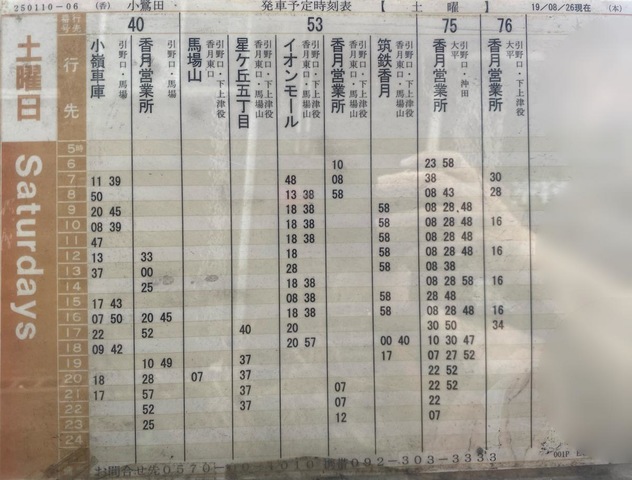 250110-06 (香) 小鷺田 発車予定時刻表 【 土 曜 】 19/08/26現在 (本)
行先番号 40 53 75 76
土曜日
Saturdays
行先
小嶺車庫 引野口・馬場
香月営業所 引野口・馬場
馬場山 引野口・下上津役 香月東口
星ケ丘五丁目 引野口・下上津役 香月東口・馬場山
イオンモール 引野口・下上津役 香月東口・馬場山
香月営業所 引野口・下上津役 香月東口・馬場山
筑鉄香月 引野口・下上津役 香月東口・馬場山
香月営業所 引野口・沖田 大平
香月営業所 引野口・下上津役 大平
5時
6 10 23 58
7 11 39 48 08 38 30
8 50 13 38 58 08 43 28
9 20 45 18 38 58 08 28 48
10 08 39 18 38 58 08 28 48 16
11 47 18 38 58 08 28 48
12 13 33 18 58 08 28 48 16
13 37 00 28 58 08 38
14 25 18 38 08 28 58 16
15 17 43 08 38 58 28 48
16 07 50 20 45 18 38 58 08 28 48 16
17 22 52 40 20 30 50 34
18 09 42 20 57 00 40 10 30 47
19 10 49 37 17 07 27 52
20 18 28 07 37 22 52
21 17 57 37 07 22 52
22 52 37 07 22
23 25 12 07
24
お問合せ先0570- 1010 携帯092-303-3333
001P